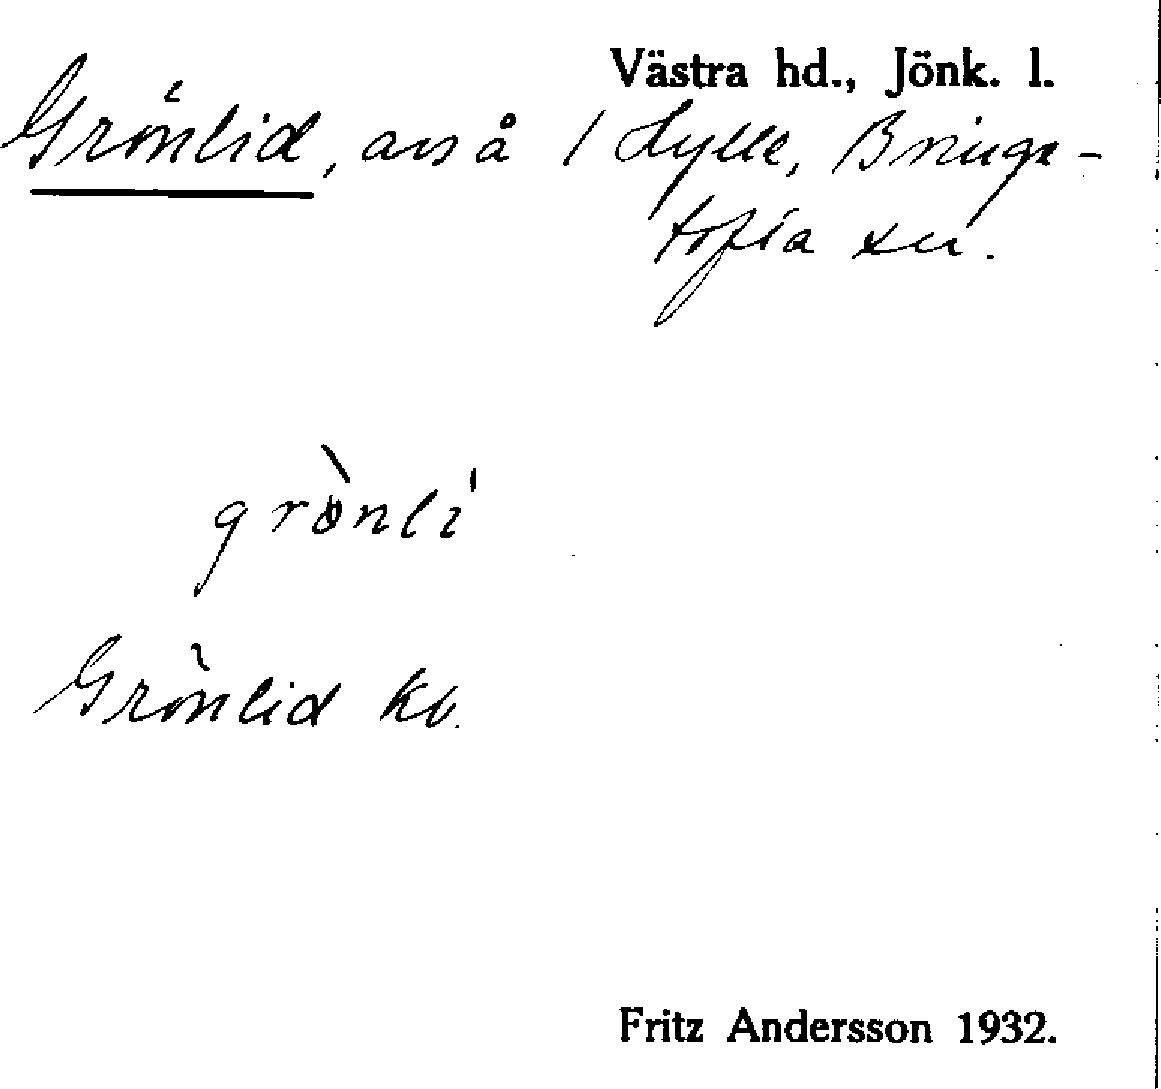 Västra hd., Jönk. l.
Grönlid, avs å 1 Hylle, Bringe-
tofta sn.
grònli'
Grönlid kb.
Fritz Andersson 1932.